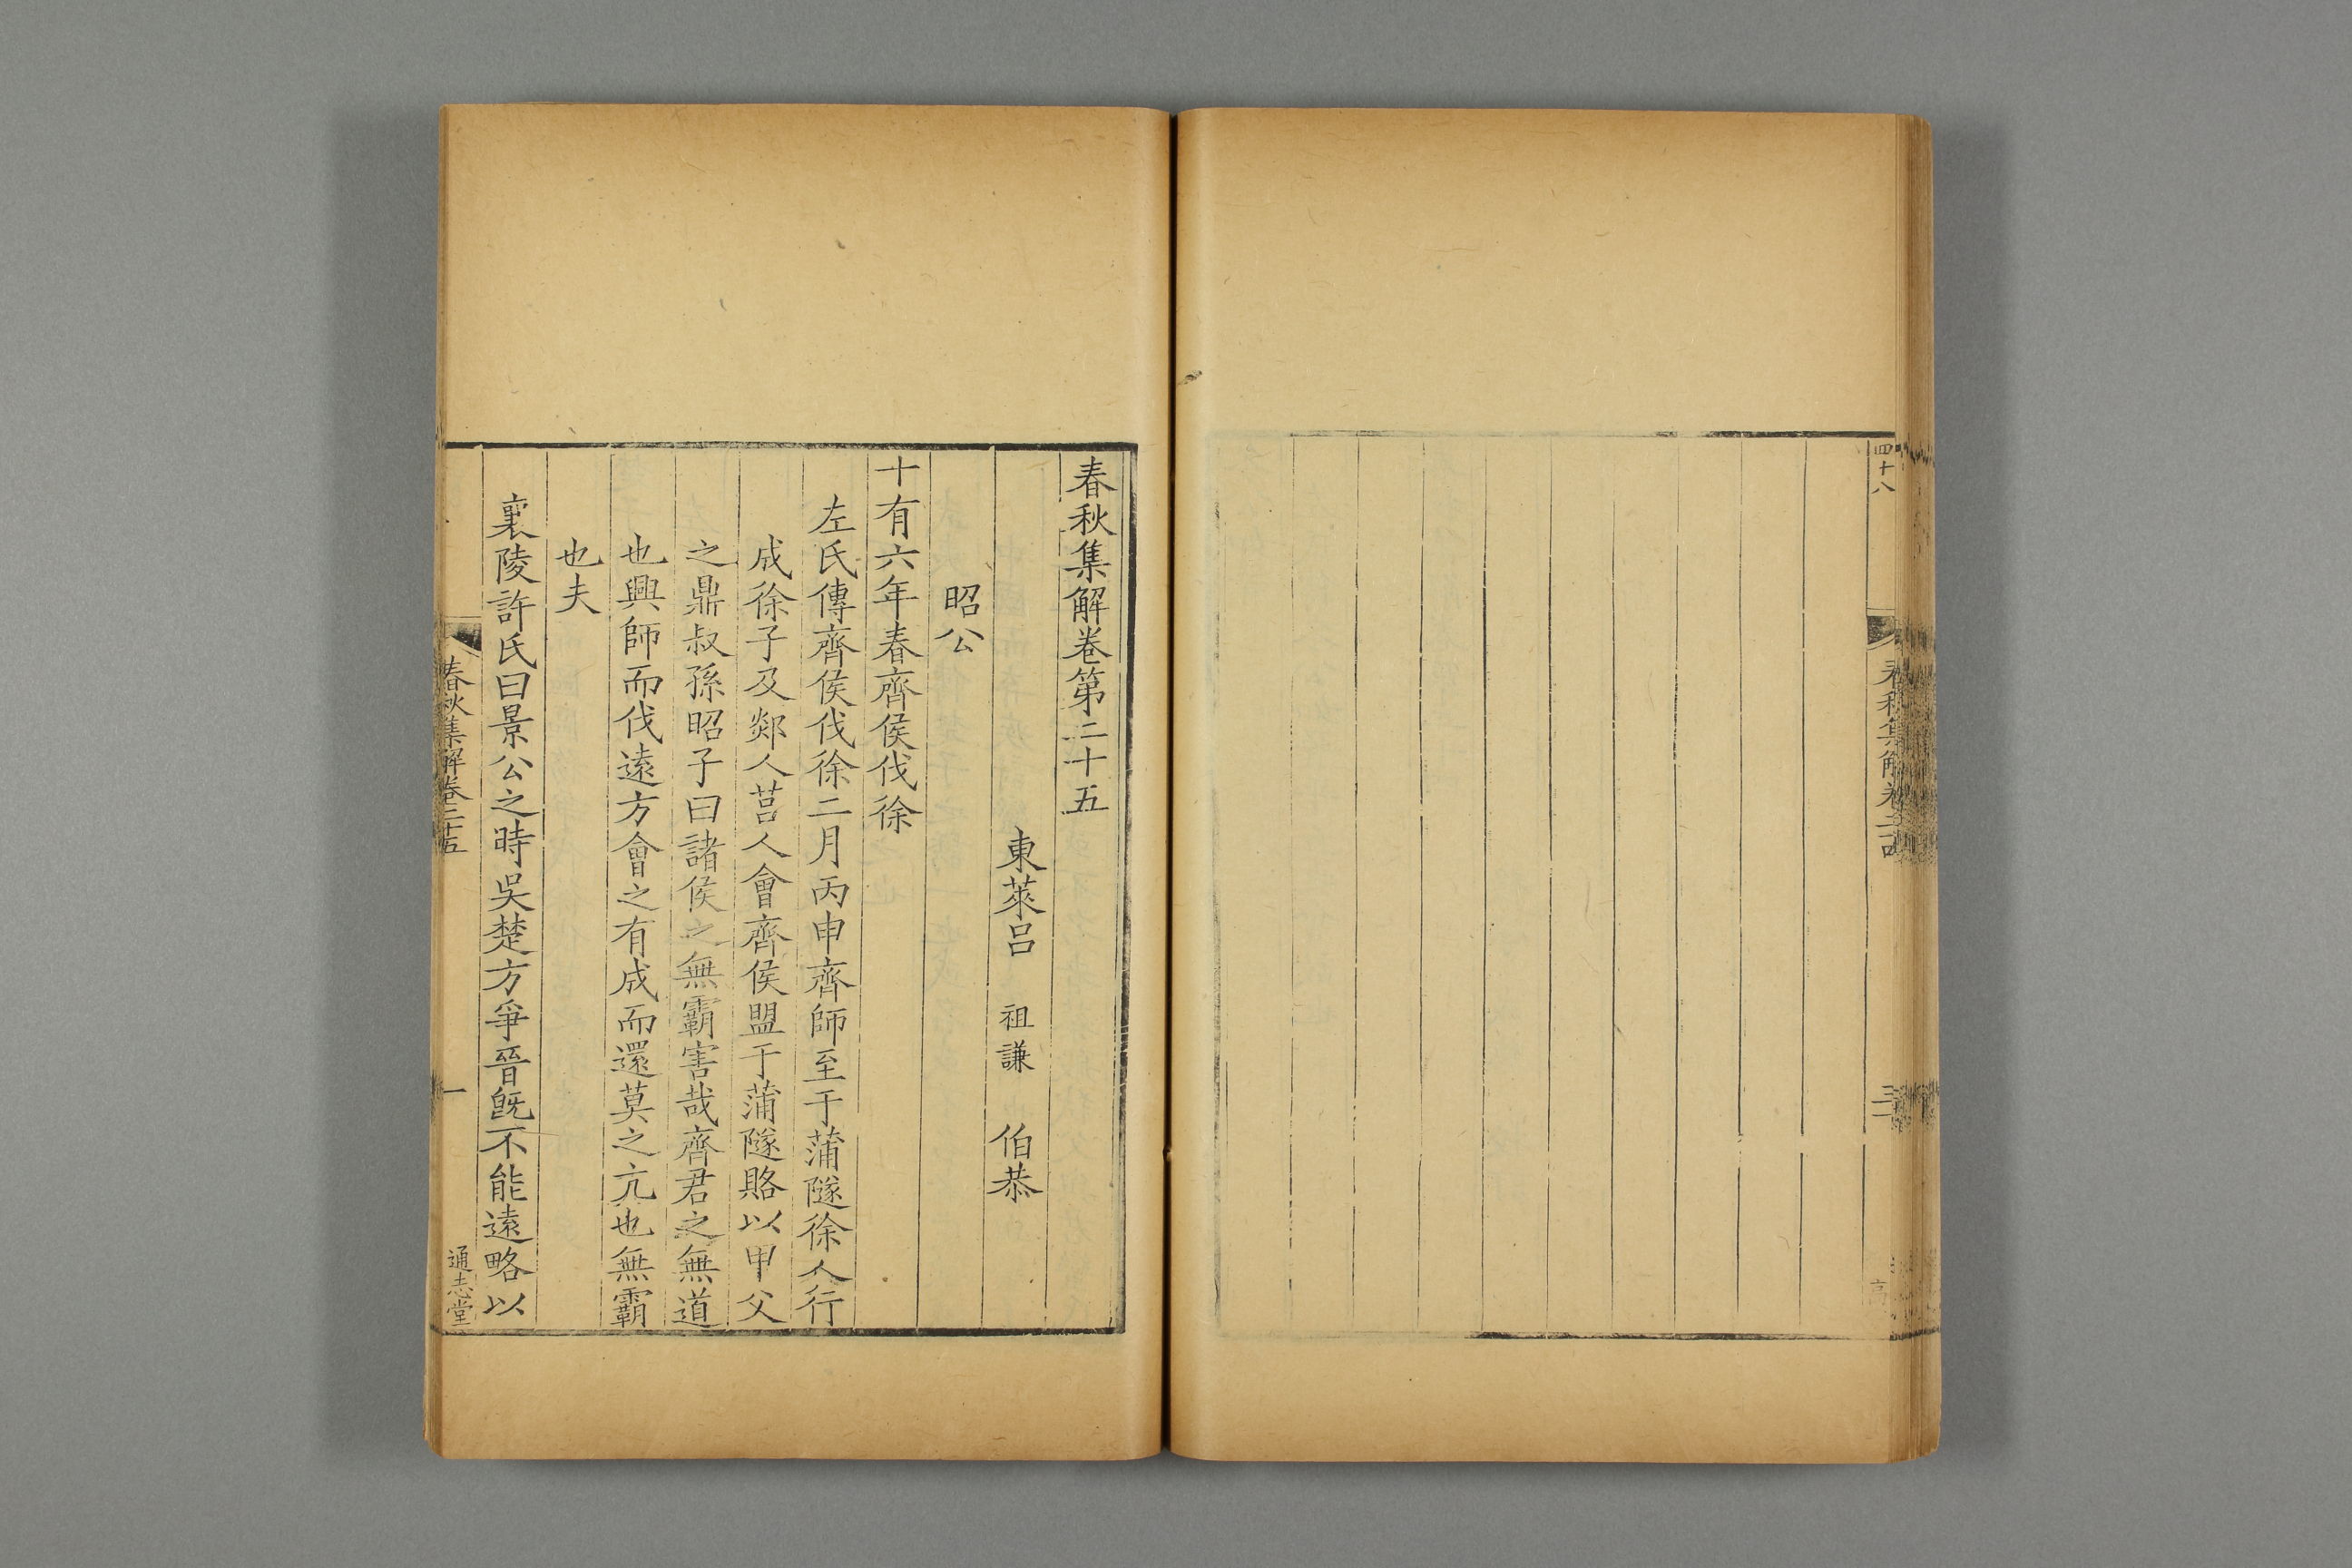 四十八
春秋集解卷二十四
春秋集解卷第二十五
東萊呂 祖謙 伯恭
昭公
十有六年春齊侯伐徐
左氏傳齊侯伐徐二月丙申齊師至于蒲隧徐人行
成徐子及郯人莒人會齊侯盟于蒲隧賂以甲父
之鼎叔孫昭子曰諸侯之無霸害哉齊君之無道
也興師而伐遠方會之有成而還莫之亢也無霸
也夫
襄陵許氏曰景公之時吳楚方爭晉旣不能遠略以
春秋集解卷二十五
一
通志堂